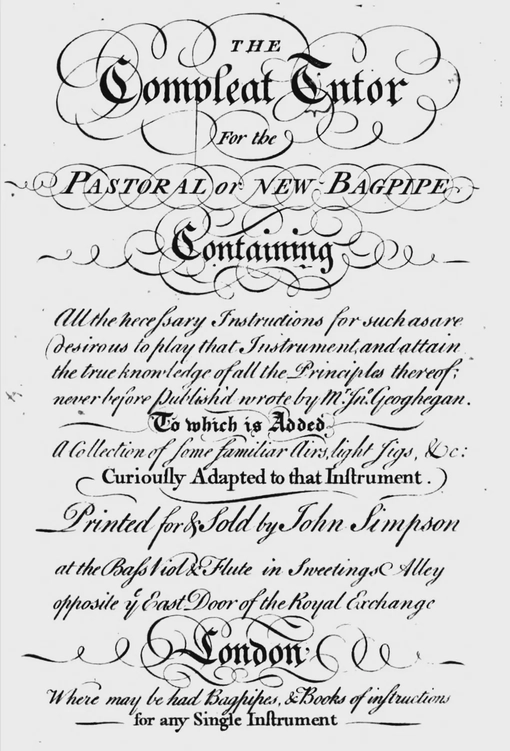 THE
Compleat Tutor
For the
PASTORAL or NEW BAGPIPE
Containing
All the neceſsary Instructions for such as are
desirous to play that Instrument, and attain
the true knowledge of all the Principles thereof;
never before publish'd wrote by Mr. Jno. Geoghegan.
To which is Added
A Collection of ſome familiar Airs, light Jigs, &c:
Curiouſly Adapted to that Inſtrument.
Printed for & Sold by John Simpson
at the Baſs Viol & Flute in Sweetings Alley
opposite ye East Door of the Royal Exchange
London
Where may be had Bagpipes, & Books of inſtructions
for any Single Inſtrument